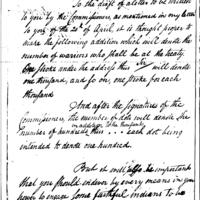 To the draft of a letter to be written
to you by the Commissioners, as mentioned in my letter
to you of the 20th of April, it is thought proper to
insert the following addition which will denote the
number of warriors who shall be at the treaty.
One stroke under the address thus Sir will denote
one thousand, and so on, one stroke for each
thousand
And after the signature of the
Commissioners, the number of dots will denote the
number of hundreds thus . . . each dot being
in addition to the thousands
intended to denote one hundred.
But it will be important
that you should endeavor by every means in your
power to engage some faithful indians to